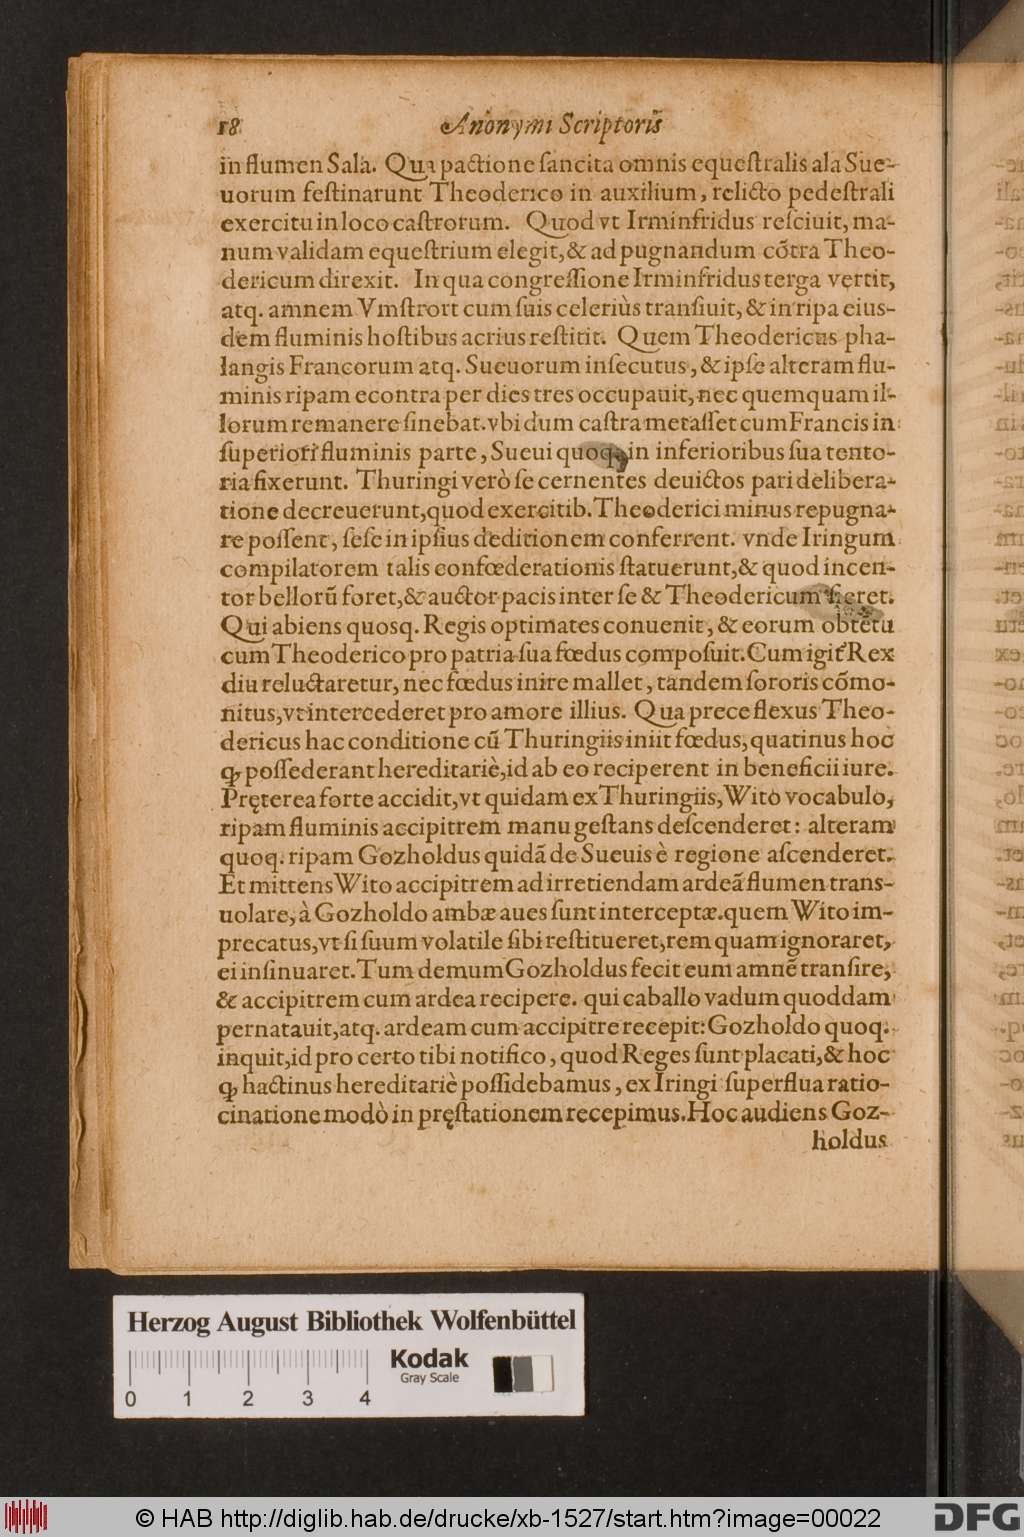 18 Anonymi Scriptoris
in flumen Sala. Qua pactione ſancita omnis equeſtralis ala Sue-
uorum feſtinarunt Theoderico in auxilium, relicto pedeſtrali
exercitu in loco caſtrorum. Quod vt Irminfridus reſciuit, ma-
num validam equeſtrium elegit, & ad pugnandum cõtra Theo-
dericum direxit. In qua congreſſione Irminfridus terga vertit,
atq. amnem Vmſtrort cum ſuis celeriùs tranſiuit, & in ripa eius-
dem fluminis hoſtibus acrius reſtitit. Quem Theodericus pha-
langis Francorum atq. Sueuorum inſecutus, & ipſe alteram flu-
minis ripam econtra per dies tres occupauit, nec quemquam il-
lorum remanere ſinebat. vbi dum caſtra metaſſet cum Francis in
ſuperiori fluminis parte, Sueui quoq. in inferioribus ſua tento-
ria fixerunt. Thuringi verò ſe cernentes deuictos pari delibera-
tione decreuerunt, quod exercitib. Theoderici minus repugna-
re poſſent, ſeſe in ipſius deditionem conferrent. vnde Iringum
compilatorem talis confœderationis ſtatuerunt, & quod incen-
tor bellorũ foret, & auctor pacis inter ſe & Theodericum fieret.
Qui abiens quosq. Regis optimates conuenit, & eorum obtētu
cum Theoderico pro patria ſua fœdus compoſuit. Cum igit᷑ Rex
diu reluctaretur, nec fœdus inire mallet, tandem ſororis cõmo-
nitus, vt intercederet pro amore illius. Qua prece flexus Theo-
dericus hac conditione cũ Thuringiis iniit fœdus, quatinus hoc
ꝙ poſſederant hereditariè, id ab eo reciperent in beneficii iure.
Pręterea forte accidit, vt quidam ex Thuringiis, Wito vocabulo,
ripam fluminis accipitrem manu geſtans deſcenderet: alteram
quoq. ripam Gozholdus quidã de Sueuis è regione aſcenderet.
Et mittens Wito accipitrem ad irretiendam ardeã flumen trans-
uolare, à Gozholdo ambæ aues ſunt interceptæ. quem Wito im-
precatus, vt ſi ſuum volatile ſibi reſtitueret, rem quam ignoraret,
ei inſinuaret. Tum demum Gozholdus fecit eum amnẽ tranſire,
& accipitrem cum ardea recipere. qui caballo vadum quoddam
pernatauit, atq. ardeam cum accipitre recepit: Gozholdo quoq.
inquit, id pro certo tibi notifico, quod Reges ſunt placati, & hoc
ꝙ hactinus hereditariè poſſidebamus, ex Iringi ſuperflua ratio-
cinatione modò in pręſtationem recepimus. Hoc audiens Goz-
holdus
Herzog August Bibliothek Wolfenbüttel
Kodak
Gray Scale
0 1 2 3 4
© HAB http://diglib.hab.de/drucke/xb-1527/start.htm?image=00022
DFG